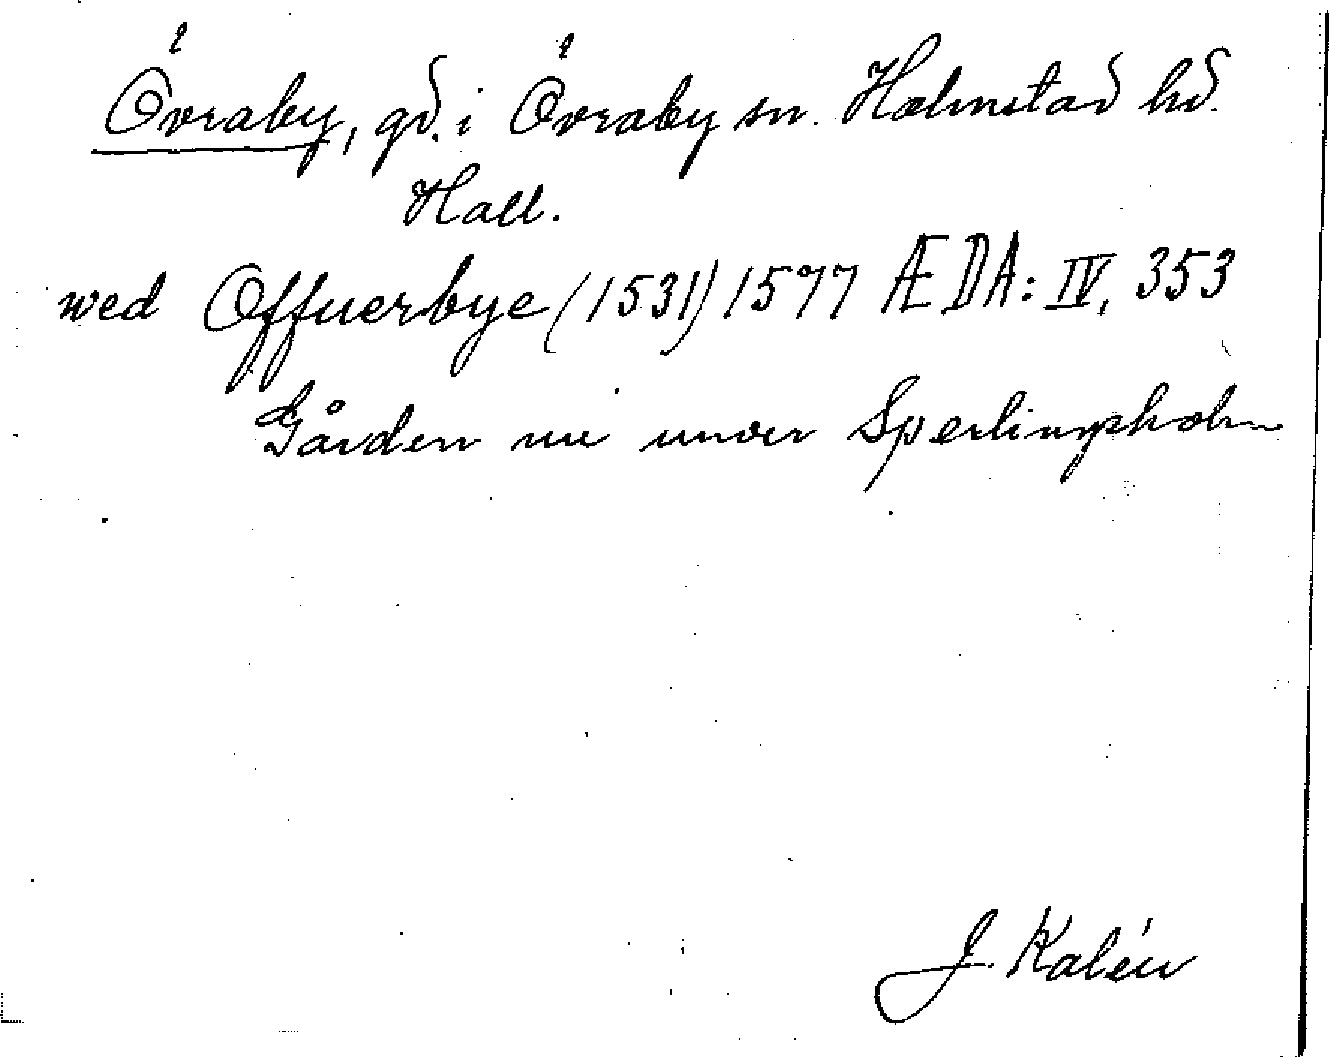 Övraby, gd. i Övraby sn. Halmstad hd.
Hall.
wed Offuerbye (1531) 1577 ÆDA: IV, 353
Gården nu under Sperlingsholm
J. Kalén